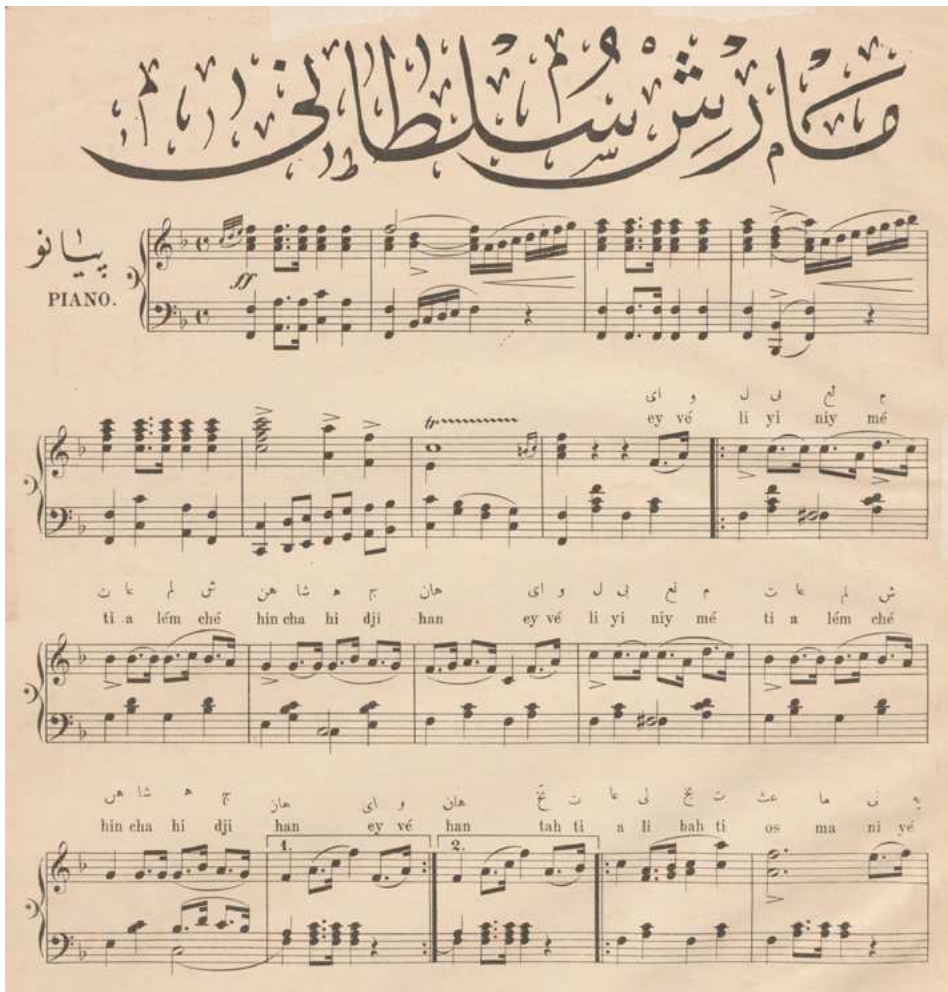 مارش سلطانی
پیانو
PIANO.
ff
ای و ل یی نع م
ey vé li yi niy mé
tr
ت عا لم ش هن شا ه ج هان ای و ل یی نع م ت عا لم ش
ti a lém ché hin cha hi dji han ey vé li yi niy mé ti a lém ché
هن شا ه ج هان ای و هان تخ ت عا لی بخ ت عث ما نی یه
hin cha hi dji han ey vé han tah ti a li bah ti os ma ni yé
1. 2.